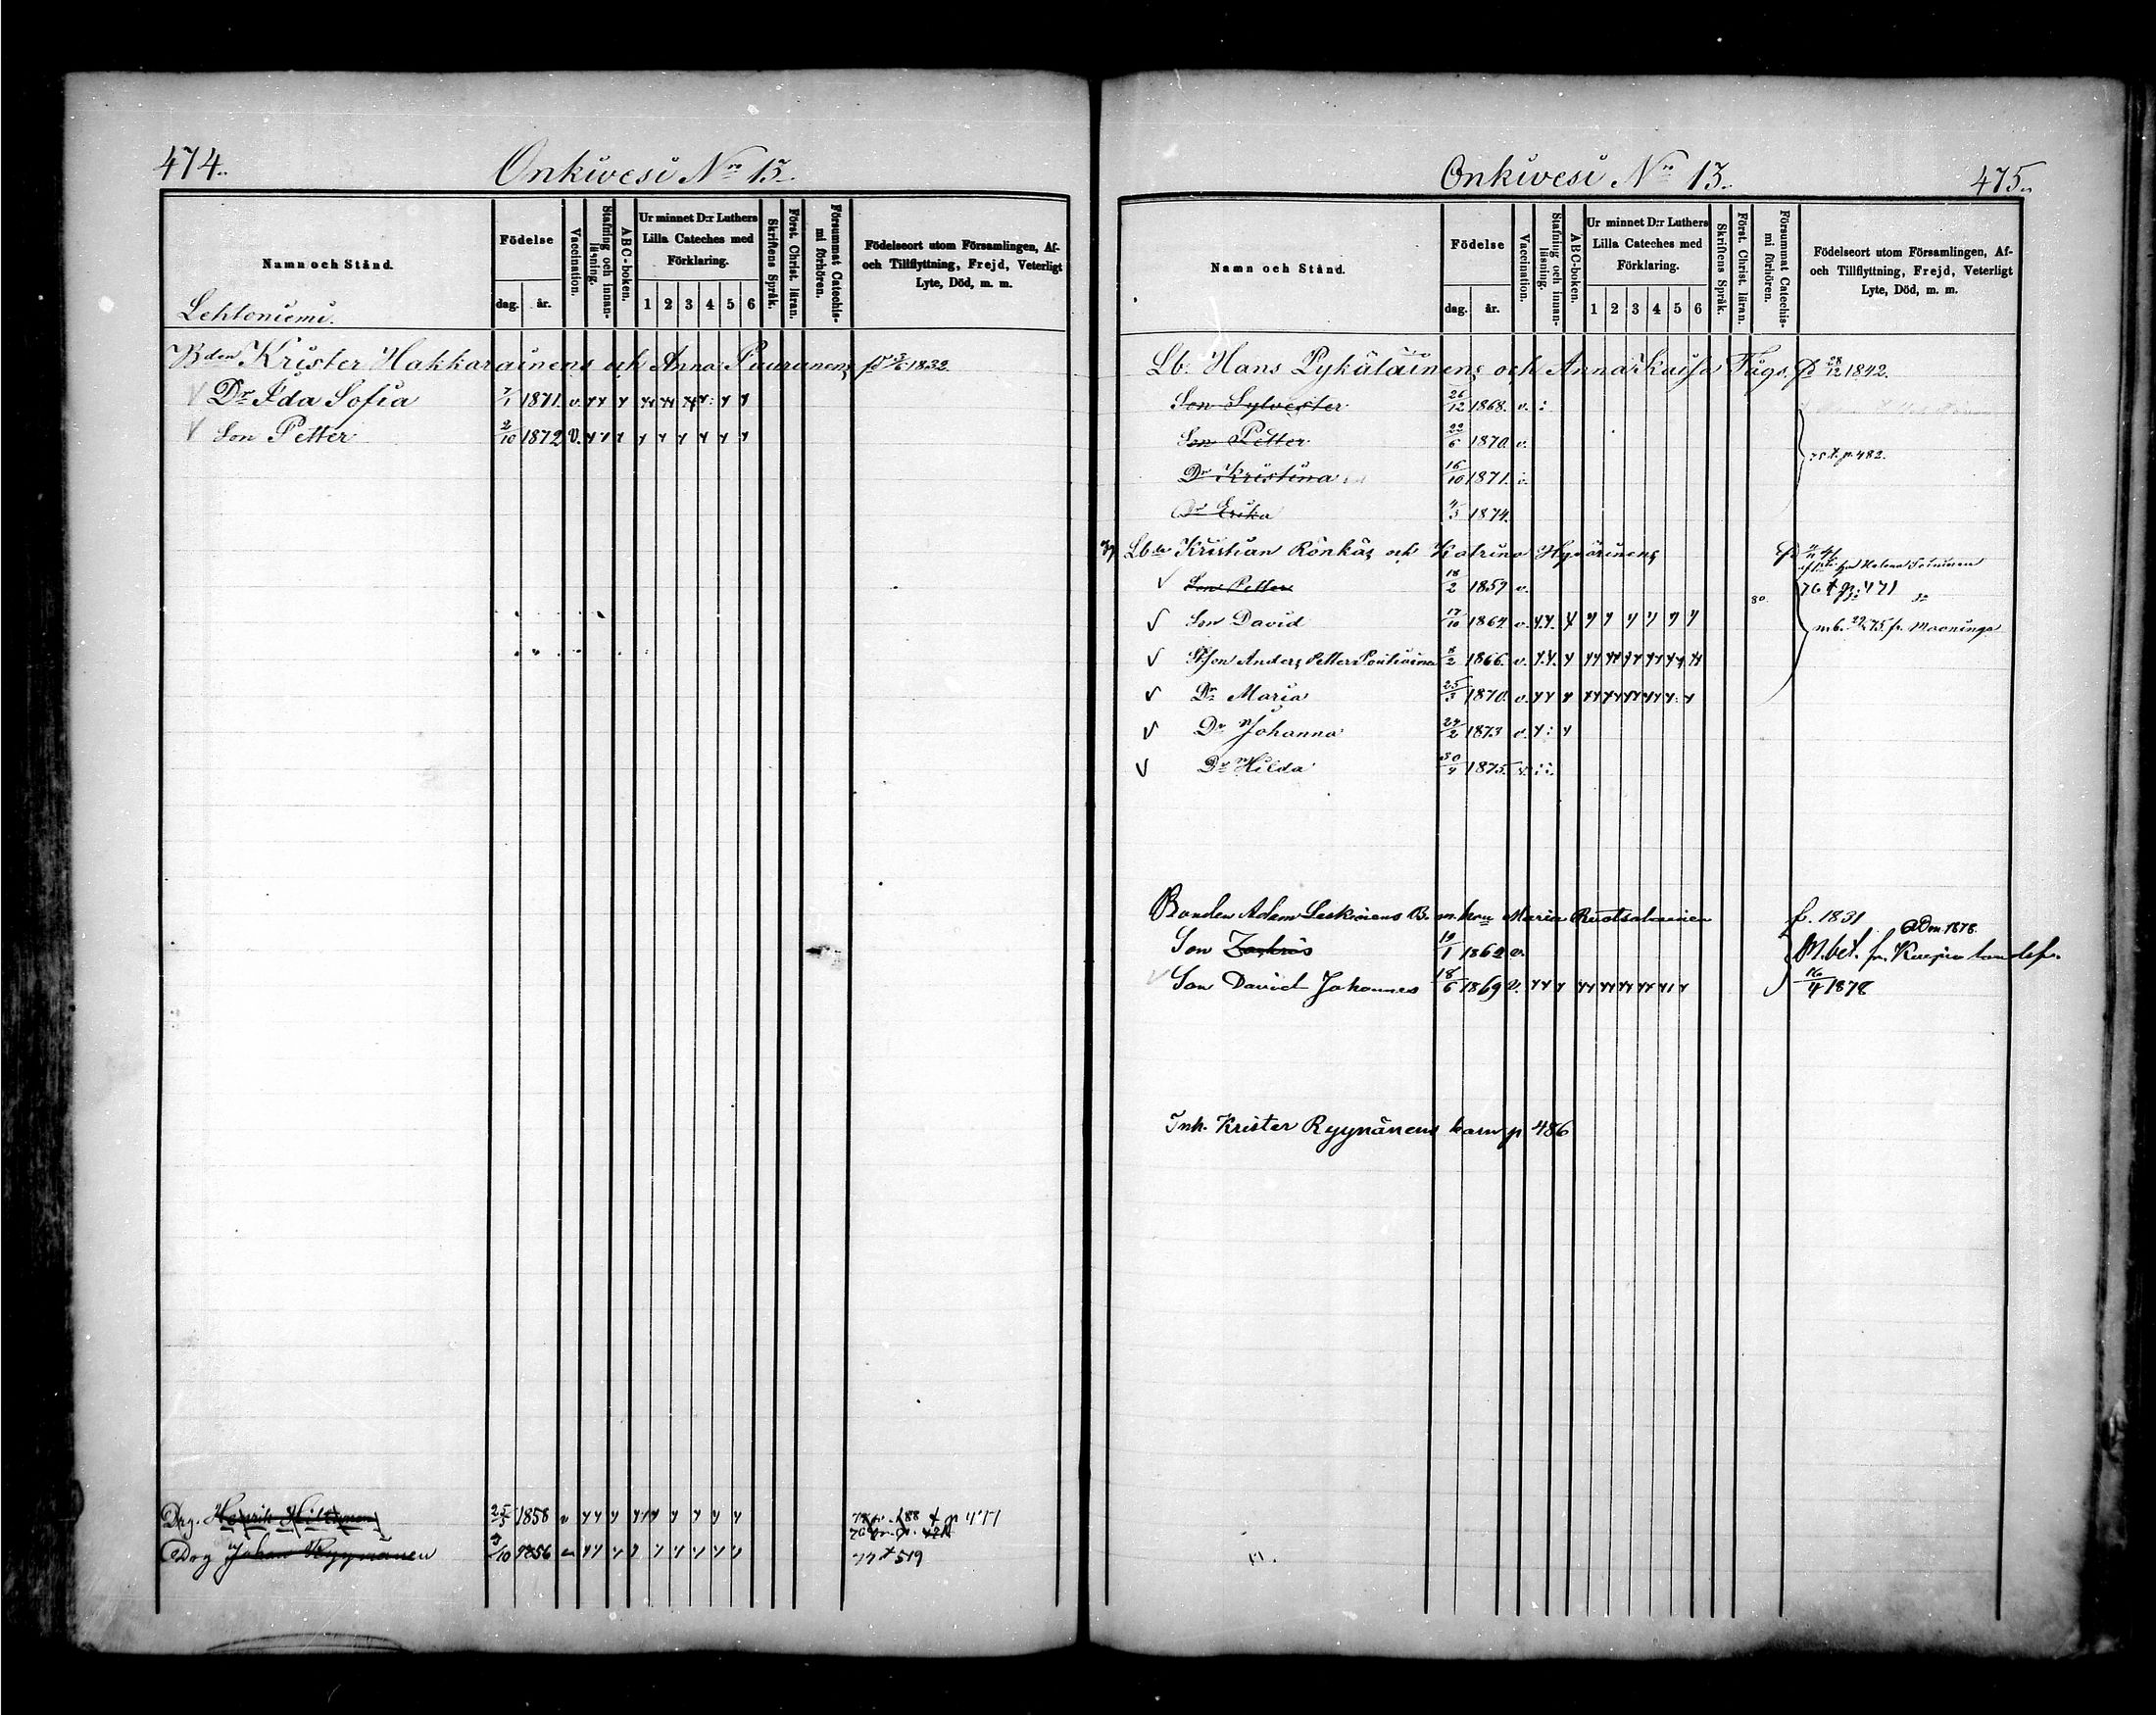 474.
Onkivesi No 13.
Namn och Stånd.
Födelse
dag.
år.
Vaccination.
Stafning och innanläsning.
ABC-boken.
Ur minnet D:r Luthers Lilla Cateches med Förklaring.
1 2 3 4 5 6
Skriftens Språk.
Först. Christ. läran.
Försummat Catechismi förhören.
Födelseort utom Församlingen, Af- och Tillflyttning, Frejd, Veterligt Lyte, Död, m. m.
Lehtoniemi.
Bden Krister Hakkarainens och Anna Paurunens 1832.
Dr Ida Sofia 7/1 1871. v.
Son Petter 2/10 1872 v.
Drg. Henrik 25/5 1858 v
Drg Johan Ryynänen 3/10 1856 v 77 + 519
Onkivesi No 13.
475.
Namn och Stånd.
Födelse
dag.
år.
Vaccination.
Stafning och innanläsning.
ABC-boken.
Ur minnet D:r Luthers Lilla Cateches med Förklaring.
1 2 3 4 5 6
Skriftens Språk.
Först. Christ. läran.
Försummat Catechismi förhören.
Födelseort utom Församlingen, Af- och Tillflyttning, Frejd, Veterligt Lyte, Död, m. m.
Lb. Hans Pykäläinens och Anna Kaisa 28/12 1842.
Son Sylvester 26/12 1868. v.
Son Petter 22/6 1870. v.
Dr Kristina 16/10 1871. v. p. 482.
Dr Erika 4/3 1874.
Kristian Rönkäs och Katrina Hyvärinens
Son Petter 18/2 1859 v. 471
Son David 17/10 1864 v. 75. fr. Maaninga
Anders Petter 8/2 1866. v.
Dr Maria 25/3 1870. v.
Dr Johanna 24/2 1873 v.
Dr Hilda 30/4 1875. v.
Bonden Adam Leskinens Maria Ruotsalainen f. 1831
Son 19/1 1862 v. M.bet. fr.
Son David Johannes 18/6 1869 v. 16/4 1878
Inh. Krister Ryynänens barn p 486